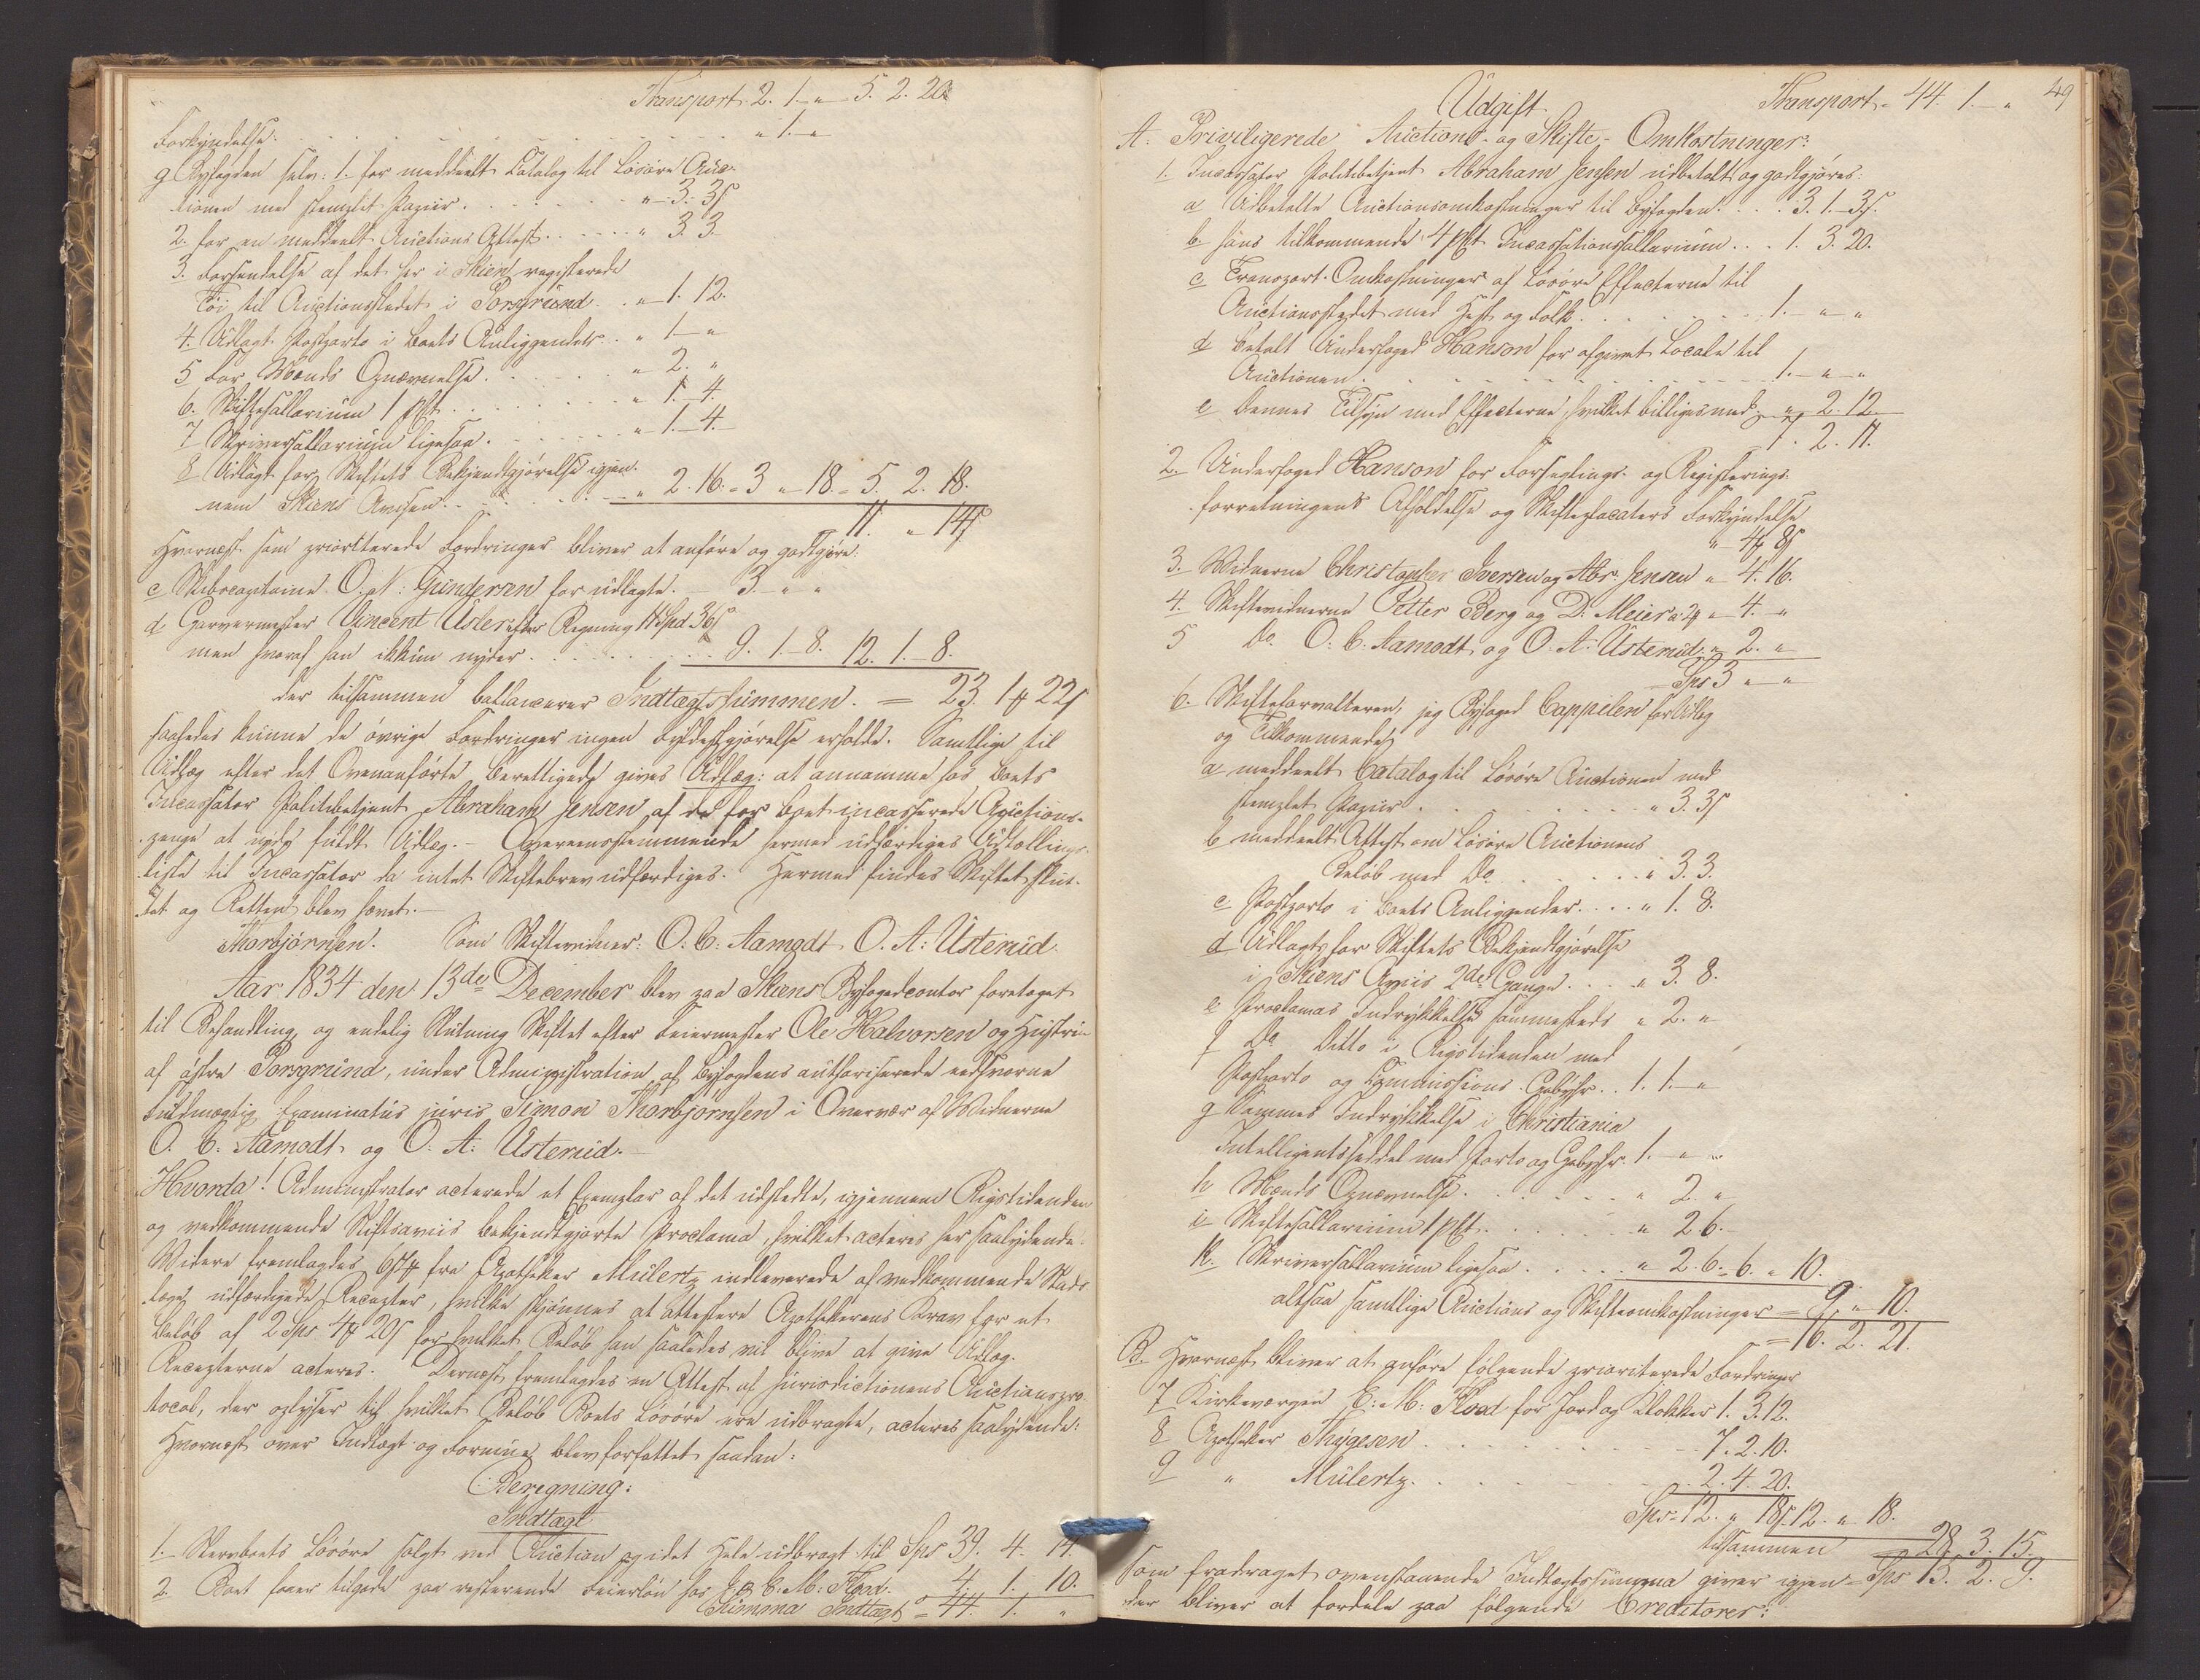 Transport 2. 1. " 5. 2. 20
Forkyndelse. " 1. "
g Byfogden selv: 1. for meddeelt Catalog til Løsøre Auc-
tionen med stemplet Papiir. " 3. 3ß
2. for en meddeelt Auctions Attest. " 3. 3.
3. Forsendelse af det her i Skien registerede
Tøi til Auctionsstedet i Porsgrund. " 1. 12.
4. Udlagt Postporto i Boets Anliggender. " 1. "
5 For Mænds Opnævnelse. " 2. "
6. Skiftesallarium 1 pCt. " 1. 4.
7 Skriversallarium ligesaa. " 1. 4.
8 Udlagt for Skiftets Bekjendtgjørelse igjen-
nem Skiens Avisen. " 2. 16. = 3 " 18. = 5. 2. 18.
11. " 14ß
Hvornæst som prioriterede Fordringer bliver at anføre og godtgjøre:
c Skibscapitaine O. N: Gundersen for udlagte. 3. " "
d Garvermester Vincent Usler efter Regning 3ß
men hvoraf han ikkun nyder. 9. 1. 8. 12. 1. 8.
der tilsammen ballancerer Indtægtssummen. = 23. 1 ℔ 22ß
saaledes kunne de øvrige Fordringer ingen Fyldestgjørelse erholde. Samtlige til
Udlæg efter det Ovenanførte berettigede gives Udlæg: at annamme hos Boets
Incassator Politibetjent Abraham Jensen af de for Boet incasserede Auctions-
penge at nyde fuldt Udlæg. – Overeensstemmende hermed udfærdiges Udtællings-
liste til Incassator da intet Skiftebrev udfærdiges. Hermed findes Skiftet slut-
tet og Retten blev hævet. –
Thorbjørnsen. Som Skiftevidner: O: C: Aamodt O. A: Usterud.
Aar 1834 den 13de December blev paa Skiens Byfogedcontor foretaget
til Behandling og endelig Slutning Skiftet efter Feiermester Ole Halvorsen og Hustrue
af østre Porsgrund, under Administration af Byfogdens authoriserede eedsvorne
Fuldmægtig Examinatus juris Simon Thorbjørnsen i Overvær af Vidnerne
O. C. Aamodt og O. A: Usterud. –
Hvorda! Administrator acterede et Exemplar af det udstedte, igjennem Rigstidenden
og vedkommende Stiftsaviis bekjendtgjorte Proclama, hvilket acteres her saalydende.
Videre fremlagdes fra Apotheker Mülertz indleverede af vedkommende Stads-
læge udfærdigede Recepter, hvilke skjønnes at attestere Apothekerens Krav for et
Beløb af 2 Sps 4 ℔ 20ß for hvilket Beløb han saaledes vil blive at give Udlæg.
Recepterne acteres. Dernæst fremlagdes en Attest af Jurisdictionens Auctionspro-
tocol, der oplyser til hvilket Beløb Boets Løsøre ere udbragte, acteres saalydende:
Hvornæst over Indtægt og Formue blev forfattet saadan:
Beregning:
Indtægt
1. Stervboets Løsøre solgt ved Auction og i det Hele udbragt til Sps 39. 4. 14.
2. Boet haver tilgode paa resterende Feierløn hos C. M: Flood. 4. 1. 10.
Summa Indtægt = 44. 1. "
49
Udgift Transport = 44. 1. "
A. Priviligerede Auctions- og Skifte-Omkostninger:
1. Incassator Politibetjent Abraham Jensen udbetalt og godtgjøres:
a Udbetalte Auctionsomkostninger til Byfogden. 3. 1. 3ß.
b. hans tilkommende 4 pCt Incassationssallarium. 1. 3. 20.
c Transport-Omkostninger af Løsøre Effecterne til
Auctionsstedet med Hest og Folk. 1. " "
d betalt Underfoged Hanson for afgivet Locale til
Auctionen. 1. " "
e Dennes Tilsyn med Effecterne, hvilket billiges med. " 2. 12.
7. 2. 11.
2. Underfoged Hanson for Forseglings- og Registerings-
forretningens Afholdelse og Skifteplacaters Forkyndelse
" 4 ℔ 8ß
3. Vidnerne Christopher Iversen og Abr. Jensen " 4. 16.
4. Skiftevidnerne Petter Berg og D. Meier a 2 ℔ " 4. "
5 Do. O: C. Aamodt og O. A: Usterud. " 2. "
Sps 3 " "
6. Skifteforvalteren, jeg Byfoged Cappelen for Udlæg
og Tilkommende
a meddeelt Catalog til Løsøre Auctionen med
stemplet Papiir. " 3. 3ß
b meddeelt Attest om Løsøre Auctionens
Beløb med Do " 3. 3.
c Postporto i Boets Anliggender. " 1. 8.
d Udlagt for Skiftets Bekjendtgjørelse
i Skiens Aviis 2de Gange. " 3. 8.
e Proclamas Indrykkelse sammesteds " 2. "
f Do Ditto i Rigstidenden med
Postporto og Commissions-Gebyhr. 1. 1. "
g Sammes Indrykkelse i Christiania
Intelligentssedler med Porto og Gebyhr. 1. " "
h Mænds Opnævnelse. " 2. "
i Skiftesallarium 1 pCt. " 2. 6.
k. Skriversallarium ligesaa. " 2. 6. = 6. " 10.
altsaa samtlige Auctions og Skifteomkostninger = 9. " 10.
= 16. 2. 21.
B. Hvornæst bliver at anføre følgende prioriterede Fordringer
7 Kirkeværgen C: M: Flood for Jord og Klokker 1. 3. 12.
8 Apotheker Thygesen. 7. 2. 10.
9 " Mülertz. 2. 4. 20.
Sps 12. " 18ß. 12. " 18.
tilsammen 28. 3. 15.
Som fradraget ovenstaaende Indtægtssumma giver igjen = Sps 15. 2. 9.
der bliver at fordele paa følgende Creditorer: